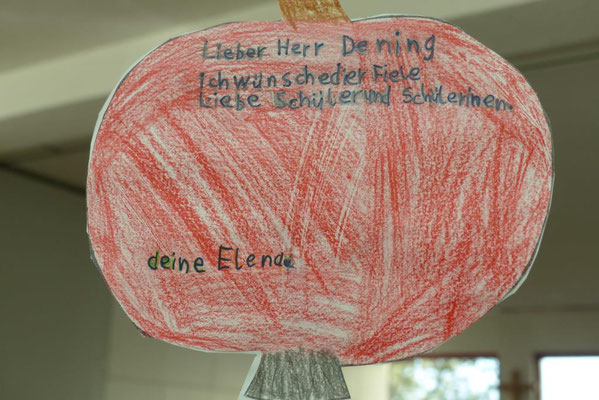 Lieber Herr Dening
Ich wünschedier Fiele
Liebe Schülerund Schülerinen.
deine Elena